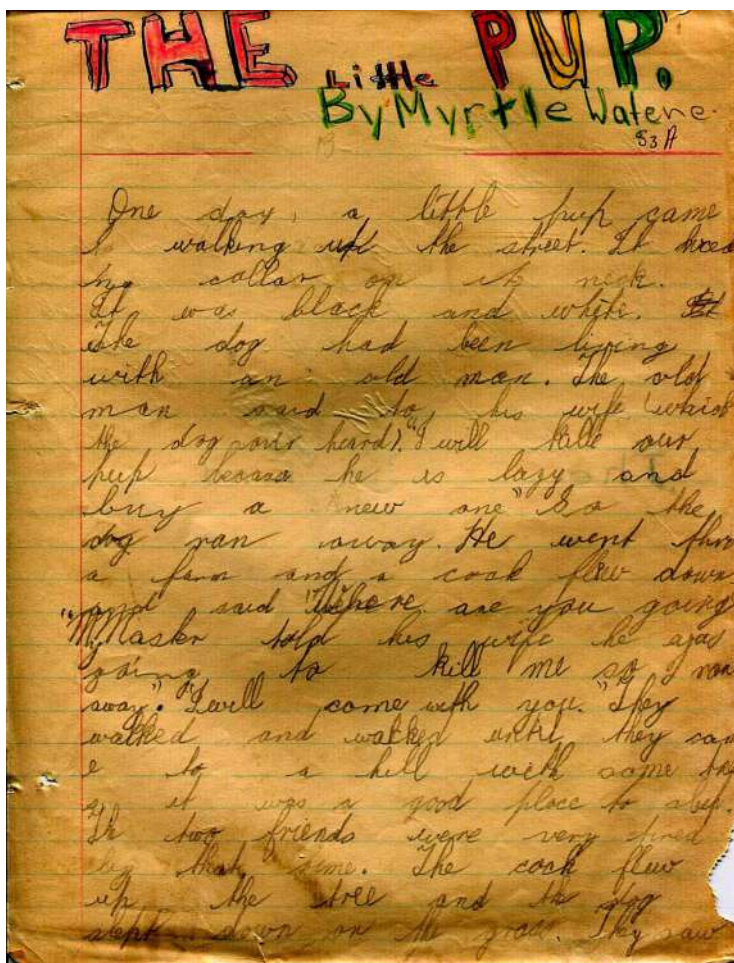 THE Little PUP.
By Myrtle Watene.
S3A
One day, a little pup came
walking up the street. It
collar on its neck.
It was black and white.
The dog had been living
with an old man. The old
man said to his wife (which
the dog over heard). "I will kille our
pup he is lazy and
buy a new one" So the
dog ran away. He went thro
a farm and a cock flew down
and said "Where are you going
"My Master told his wife he was
going to kill me so I ran
away". "I will come with you." They
walked and walked until they cam
e to a hill with some tre
it was a good place to
The two friends were very tired
by that time. The cock flew
up the tree and the dog
slept down on the grass. They saw